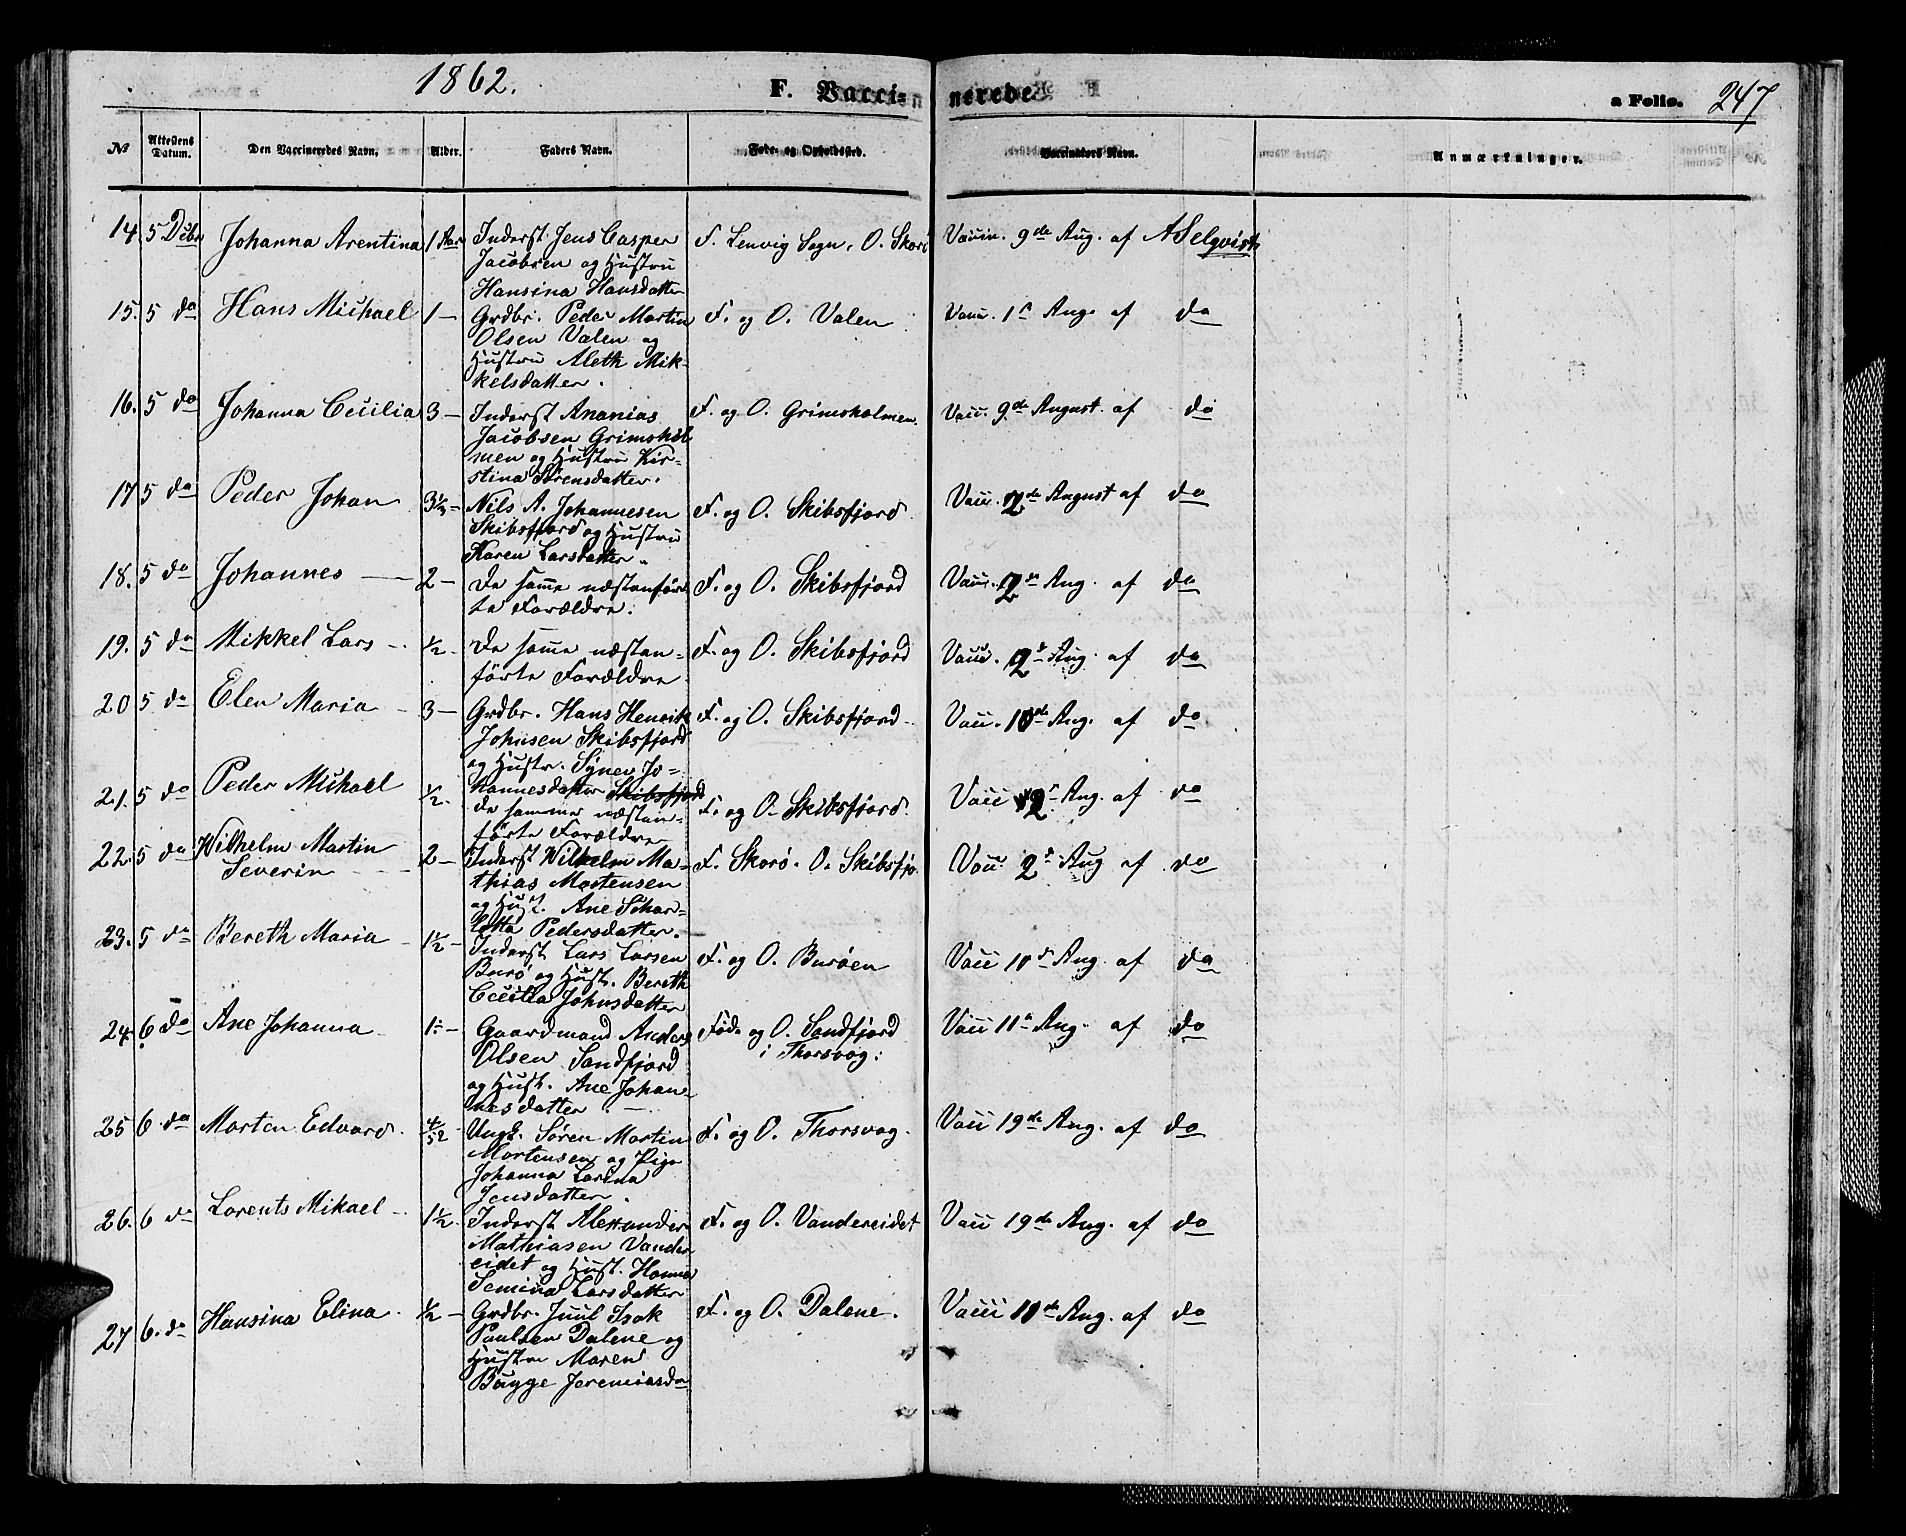 1862.
F. Vacci-
nerede
a Folio. 247
№ Attestens Datum. Den Vaccineredes Navn. Alder. Faders Navn. Føde- og Opholdssted. Vaccinators Navn. Anmærkninger.
14. 5 Debr Johanna Arentina 1 Aar Inderst Jens Casper F. Lenvig Sogn, O. Skorö Vaccin. 9de Aug. af A Selqvist
Jacobsen og Hustru
Hansina Hansdatter
15. 5 do Hans Michael 1 — Grdbr. Peder Martin F. og O. Valen Vacc. 1st Aug. af do
Olsen Valen og
Hustru Aleth Mik-
kelsdatter.
16. 5 do Johanna Cecilia 3 — Inderst Ananias F. og O. Grimsholmen. Vacc. 9de August. af do
Jacobsen Grimshol
men og Hustru Kir-
stina Sørensdatter.
17 5 do Peder Johan 3½ — Nils A. Johannesen F. og O. Skibsfjord Vacc. 2de August af do
Skibsfjord og Hustru
Karen Larsdatter
18. 5 do Johannes — 2 — De samme næstanför F. og O. Skibsfjord Vacc. 2de Aug. af do
te Forældre.
19. 5 do Mikkel Lars — ½ — De samme næstan- F. og O. Skibsfjord Vacc. 2de Aug. af do
förte Forældre
20 5 do Elen Maria — 3 — Grdbr. Hans Henrik F. og O. Skibsfjord Vacc. 10de Aug. af do
Johnsen Skibsfjord
og Hustr. Synev Jo-
hannesdatter Skibsfjord
21. 5 do Peder Michael ½ — De samme næstan- F. og O. Skibsfjord. Vacc 2 Aug. af do
förte Forældre
22. 5 do Wilhelm Martin 2 — Inderst Wilhelm Ma- F. Skorö. O. Skibsfjo Vacc 2de Aug af do
Severin thias Mortensen
og Hust. Ane Schar-
lotta Pedersdatter.
23. 5 do Bereth Maria — 1½ — Inderst Lars Larsen F. og O. Buröen Vacc 10de Aug. af do
Burö og Hust. Bereth
Cecilia Johnsdatter
24 6 do Ane Johanna — 1 — Gaardmand Anders Föd. og O. Sandfjord Vacc 11te Aug. af do
Olsen Sandfjord i Thorsvog:
og Hust. Ane Johan-
nesdatter
25 6 do Morten Edvard. 4/52 Ungk. Sören Martin F. og O. Thorsvog. Vacc 19de Aug. af do
Mortensen og Pige
Johanna Larina
Jensdatter.
26. 6 do Lorents Mikael — 1½. Inderst Alexander F. og O. Vandereidet Vacc 19de Aug. af do
Mathiasen Vander
eidet og Hust. Hanna
Semina Larsdatter
27 6. do Hansina Elina. ½ — Grdbr. Juul Isak F. og O. Dalene. Vacc 10de Aug. af do
Paulsen Dalene og
Hustru Maren
Bugge Jeremiasdr